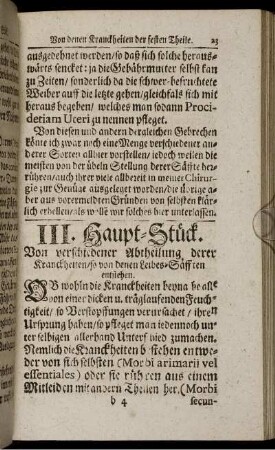 Von denen Kranckheiten der festen Theile. 23
ausgedehnet werden / so daß sich solche heraus-
wärts sencket: ja die Gebährmutter selbst kan
zu Zeiten / sonderlich da die schwer-befruchtete
Weiber auff die letzte gehen / gleichfals sich mit
heraus begeben / welches man sodann Proci-
deriam Uceri zu nennen pfleget.
Von diesen und andern dergleichen Gebrechen
könte ich zwar noch eine Menge verschiedener an-
derer Sorten allhier vorstellen / jedoch weilen die
meisten von der übeln Stellung derer Säffte her-
rühren / auch ihrer viele allbereit in meiner Chirur-
gie zur Genüge ausgeleget worden / die übrige a-
ber aus vorermeldten Gründen von selbsten klär-
lich erhellen / als wolle wir solches hier unterlassen.
III. Haupt-Stück.
Von verschiedener Abtheilung derer
Kranckheiten / so von denen Leibes-Säfften
entstehen.
OB wohln die Kranckheiten beyna he alle
von einer dicken u. träglauffenden Feuch-
tigkeit / so Verstopffungen verursachet / ihren
Ursprung haben / so pfleget man iedennoch un-
ter selbigen allerhand Unterschied zu machen.
Nemlich die Kranckheiten bestehen entwe-
der von sich selbsten (Morbi arimarii vel
essentiales) oder sie rühren aus einem
Mitleiden mit andern Theilen her. (Morbi
b 4 secun-